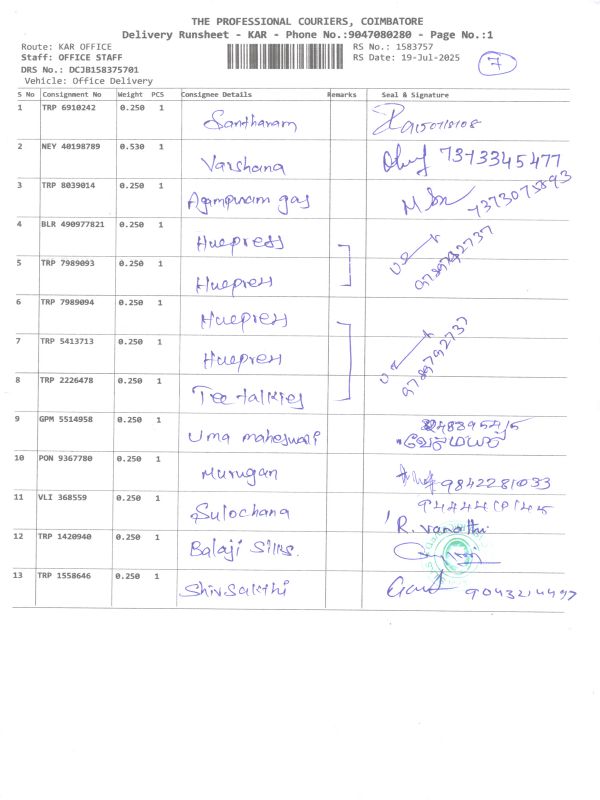 THE PROFESSIONAL COURIERS, COIMBATORE
Delivery Runsheet - KAR - Phone No.:9047080280 - Page No.:1
Route: KAR OFFICE RS No.: 1583757
Staff: OFFICE STAFF RS Date: 19-Jul-2025 7
DRS No.: DCJB158375701
Vehicle: Office Delivery
S No Consignment No Weight PCS Consignee Details Remarks Seal & Signature
1 TRP 6910242 0.250 1 Santharam
2 NEY 40198789 0.530 1 Varshana 7373345477
3 TRP 8039014 0.250 1 Agampuram gas
4 BLR 490977821 0.250 1 Huepress
5 TRP 7989093 0.250 1 Huepress
6 TRP 7989094 0.250 1 Huepress
7 TRP 5413713 0.250 1 Huepress
8 TRP 2226478 0.250 1 Tee talkies
9 GPM 5514958 0.250 1 Uma maheswari
10 PON 9367780 0.250 1 Murugan 9842281033
11 VLI 368559 0.250 1 Sulochana R. vanathi
12 TRP 1420940 0.250 1 Balaji Silks.
13 TRP 1558646 0.250 1 Shivsakthi 9043214497